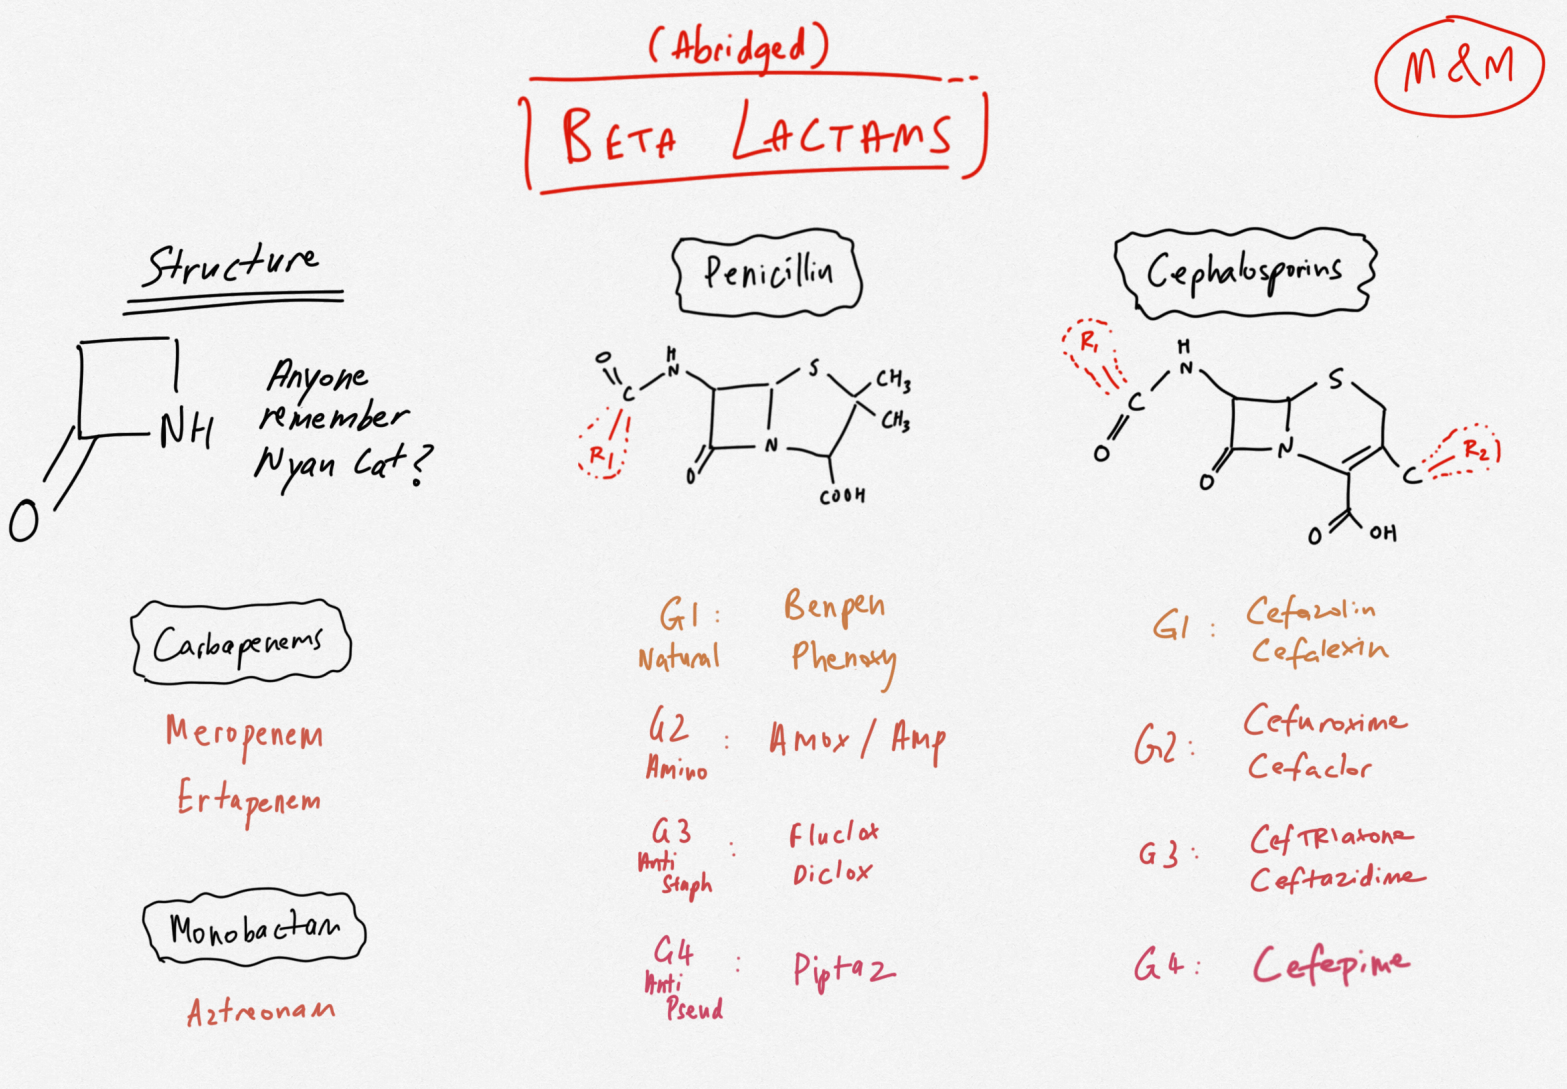 (Abridged)
BETA LACTAMS
M&M
Structure
NH
O
Anyone
remember
Nyan Cat?
Penicillin
O
H
N
C
R1
S
CH3
CH3
N
O
COOH
Cephalosporins
R1
H
N
C
O
S
N
O
C
R2
O
OH
Carbapenems
Meropenem
Ertapenem
Monobactam
Aztreonam
G1 : Benpen
Natural Phenoxy
G2 : Amox / Amp
Amino
G3 : Fluclox
Anti Staph Diclox
G4 : Piptaz
Anti
Pseud
G1 : Cefazolin
Cefalexin
G2 : Cefuroxime
Cefaclor
G3 : CefTRIaxone
Ceftazidime
G4 : Cefepime